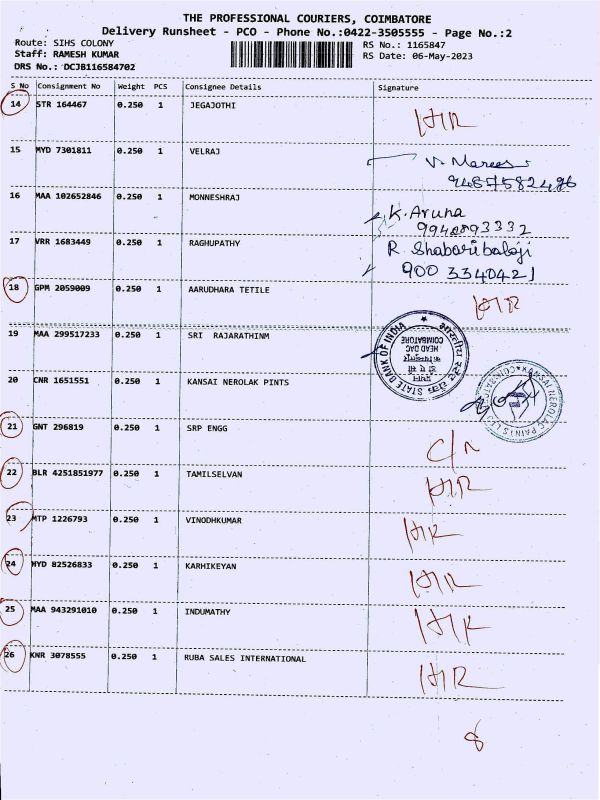 THE PROFESSIONAL COURIERS, COIMBATORE
Delivery Runsheet - PCO - Phone No.:0422-3505555 - Page No.:2
Route: SIHS COLONY
RS No.: 1165847
Staff: RAMESH KUMAR
RS Date: 06-May-2023
DRS No.: DCJB116584702
S No Consignment No Weight PCS Consignee Details Signature
14 STR 164467 0.250 1 JEGAJOTHI
15 MYD 7301811 0.250 1 VELRAJ
16 MAA 102652846 0.250 1 MONNESHRAJ
K. Aruna
9940893332
17 VRR 1683449 0.250 1 RAGHUPATHY
R Shabari balaji
900 3340421
18 GPM 2059009 0.250 1 AARUDHARA TETILE
19 MAA 299517233 0.250 1 SRI RAJARATHINM
STATE BANK OF INDIA
HEAD DAC
COIMBATORE
20 CNR 1651551 0.250 1 KANSAI NEROLAK PINTS
KANSAI NEROLAC PAINTS
21 GNT 296819 0.250 1 SRP ENGG
22 BLR 4251851977 0.250 1 TAMILSELVAN
23 MTP 1226793 0.250 1 VINODHKUMAR
24 MYD 82526833 0.250 1 KARHIKEYAN
25 MAA 943291010 0.250 1 INDUMATHY
26 KNR 3078555 0.250 1 RUBA SALES INTERNATIONAL
8